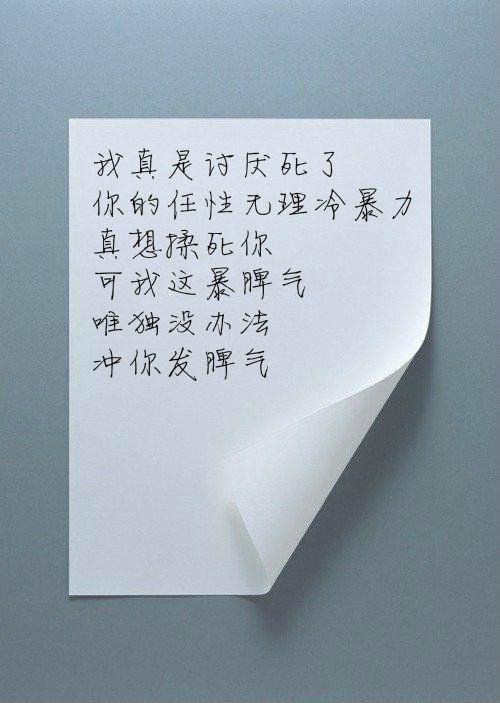 我真是讨厌死了
你的任性无理冷暴力
真想揉死你
可我这暴脾气
唯独没办法
冲你发脾气